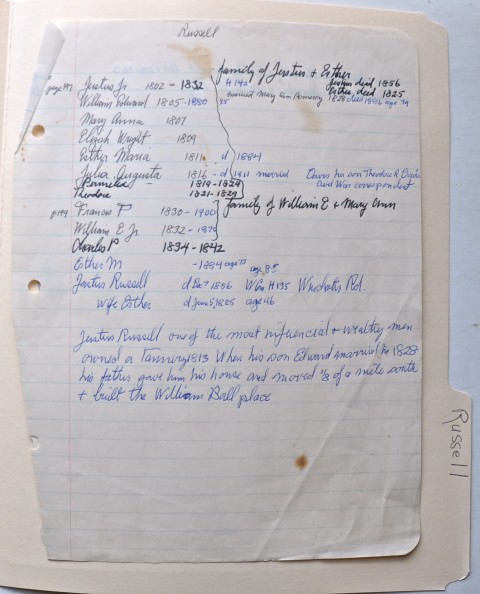 Russell
family of Justus + Esther
page 191 Justus Jr 1802 - 1832 H 142 Justus died 1856
Esther died 1825
William Edward 1805 - 1880 married Mary Ann Pomeroy 1828 died 1886 age 79
Mary Anna 1807
Elijah Wright 1809
Esther Maria 1811 - d 1884
Julia Augusta 1816 - d 1911 married Davis his son Theodore R Davis
Civil War correspondent
Permelia 1819 - 1829
Theodore 1821 - 1829
Francis P 1830 - 1900 family of William E + Mary Ann
William E Jr 1832 -
Charles P 1834 - 1842
Esther M - 1884 age 73
Justus Russell d Dec 1856 age 85 W Cem H 135 Winchester Rd.
wife Esther d June 5, 1825 age 46
Justus Russell one of the most influencial + wealthy men
owned a Tannery 1813 When his son Edward married in 1828
his father gave him his house and moved 1/8 of a mile south
+ built the William Ball place
Russell